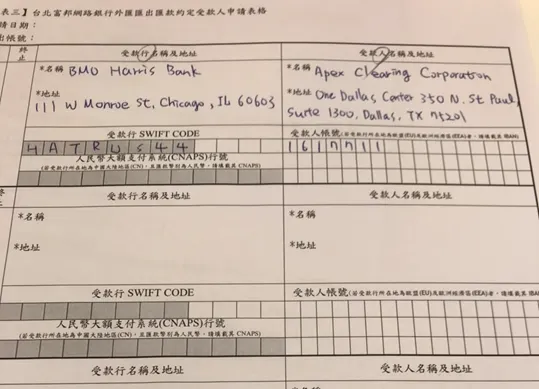 表三】台北富邦網路銀行外匯匯出匯款約定受款人申請表格
請日期：
出帳號：
終止
受款行名稱及地址
受款人名稱及地址
*名稱 BMO Harris Bank
*名稱 Apex Clearing Corporation
*地址
111 W Monroe St, Chicago, IL 60603
*地址 One Dallas Center 350 N. St Paul,
Suite 1300, Dallas, TX 75201
受款行 SWIFT CODE
受款人帳號(若受款行所在地為歐盟(EU)及歐洲經濟區(EEA)者，請填載其 IBAN)
HATRUS44
1617711
人民幣大額支付系統(CNAPS)行號
(若受款行所在地為中國大陸地區(CN)，且匯款幣別為人民幣，請填載其 CNAPS)
受款行名稱及地址
受款人名稱及地址
終止
*名稱
*名稱
*地址
*地址
受款行 SWIFT CODE
受款人帳號(若受款行所在地為歐盟(EU)及歐洲經濟區(EEA)者，請填載其 IBA
人民幣大額支付系統(CNAPS)行號
(若受款行所在地為中國大陸地區(CN)，且匯款幣別為人民幣，請填載其 CNAPS)
受款行名稱及地址
受款人名稱及地址